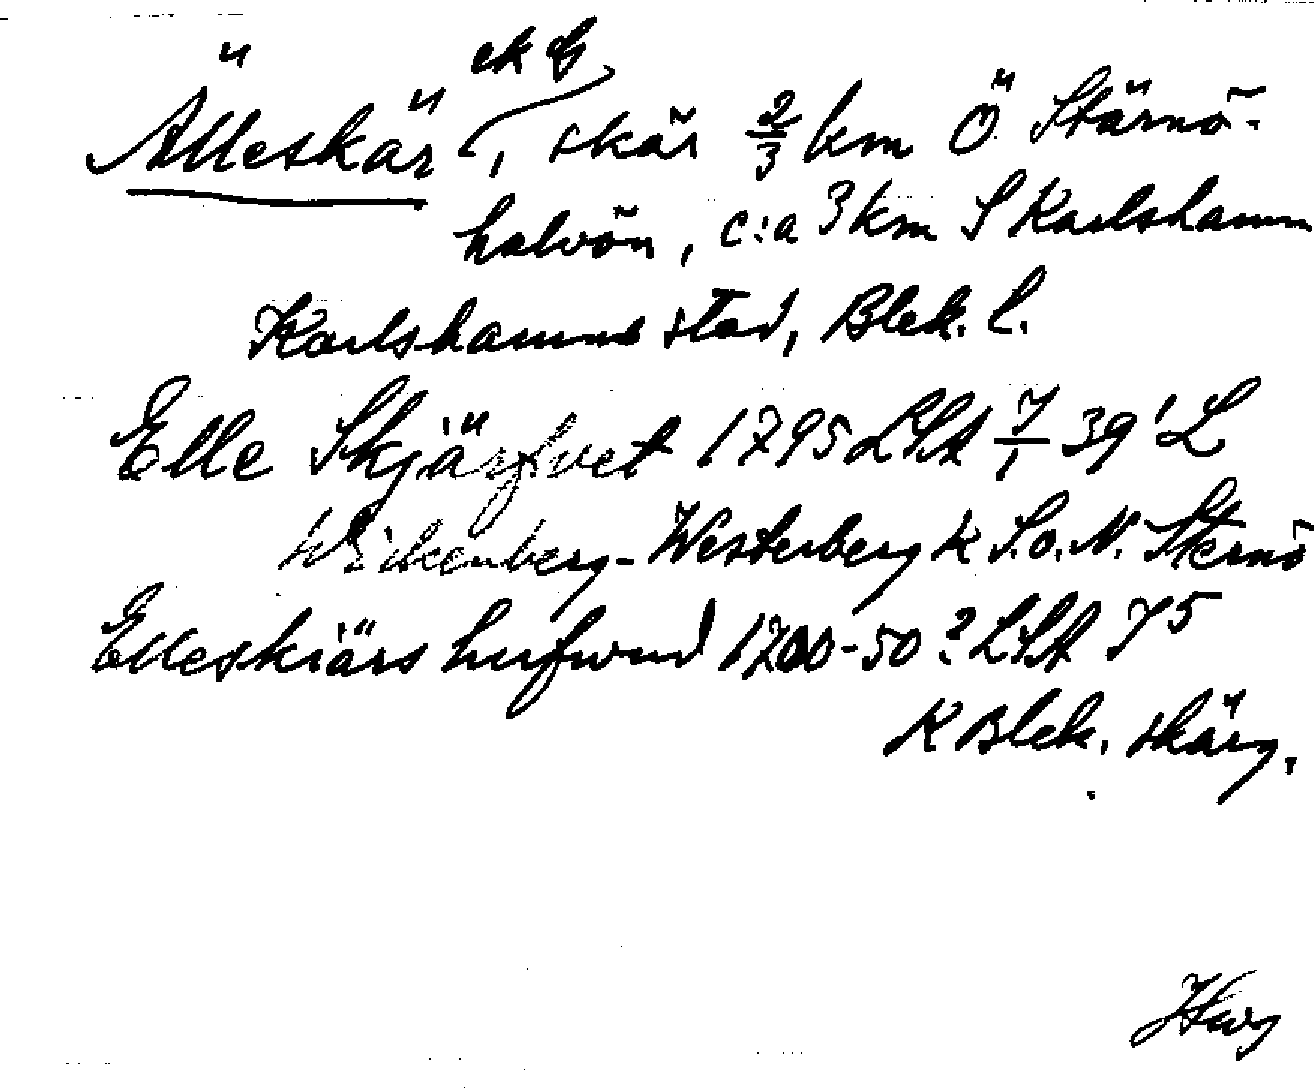 ek G
Älleskär, skär 2/3 km Ö Stärnö-
halvön, c:a 3 km S Karlshamn
Karlshamns stad, Blek. l.
Elle Skjärfvet 1795 LSA 7/1 39' L
Wickenberg-Westerberg k S.o.N. Sternö
Elleskiärs hufwud 1700-50? LSA 75
K Blek. skärg.